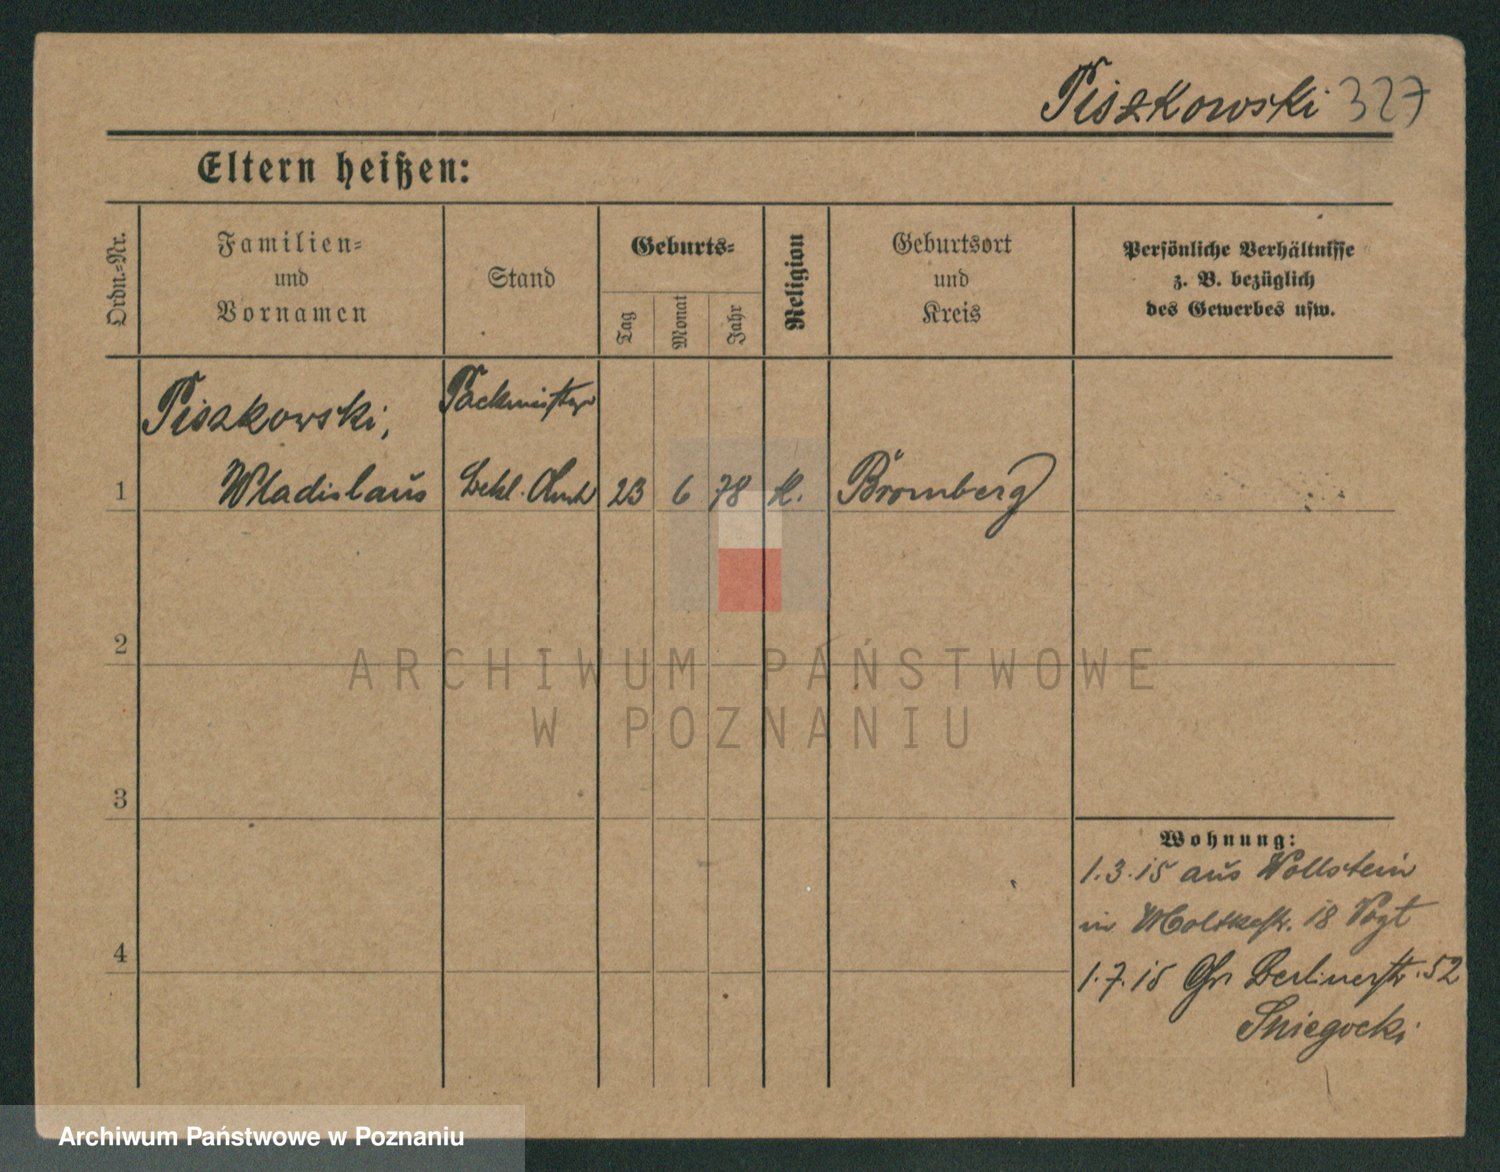 Piszkowski 327
Eltern heißen:
Ordn.-Nr.
Familien-
und
Vornamen
Stand
Geburts-
Tag
Monat
Jahr
Religion
Geburtsort
und
Kreis
Persönliche Verhältnisse
z. B. bezüglich
des Gewerbes usw.
Piszkowski, Packmeister
1 Wladislaus Bekl. Amt 23 6 78 K. Bromberg
2
3
4
Wohnung:
1.3.15 aus Wollstein
in Moltkestr. 18 Vogt
1.7.15 Gr Berlinerstr. 52
Sniegocki
ARCHIWUM PAŃSTWOWE
W POZNANIU
Archiwum Państwowe w Poznaniu